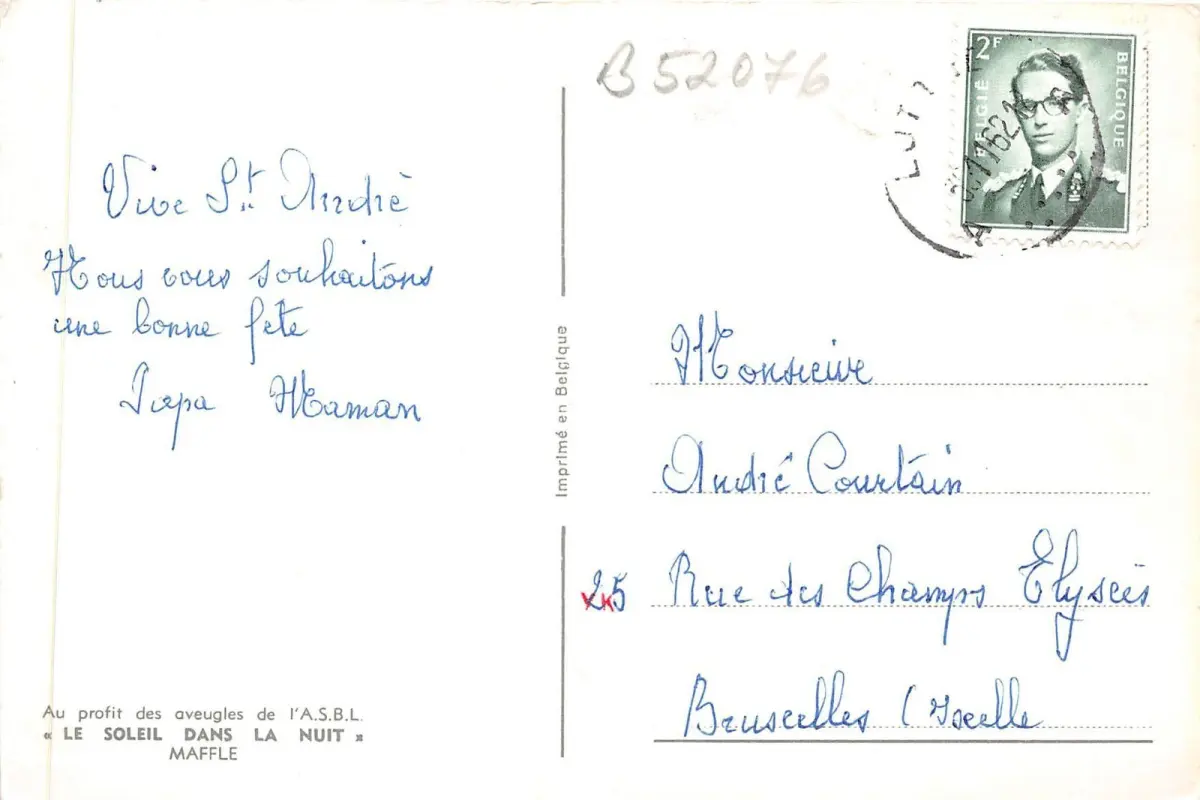 B 52076
2F
BELGIË BELGIQUE
Vive St André
Nous vous souhaitons
une bonne fete
Papa Maman
Imprimé en Belgique
Monsieur
André Courtain
25 Rue des Champs Elysées
Bruxelles (Ixelle
Au profit des aveugles de l'A.S.B.L.
« LE SOLEIL DANS LA NUIT »
MAFFLE